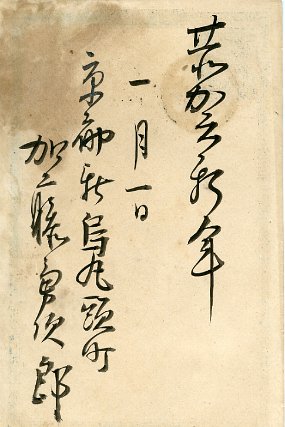 恭賀新年
一月一日
京都新烏丸頭町
加藤勇次郎